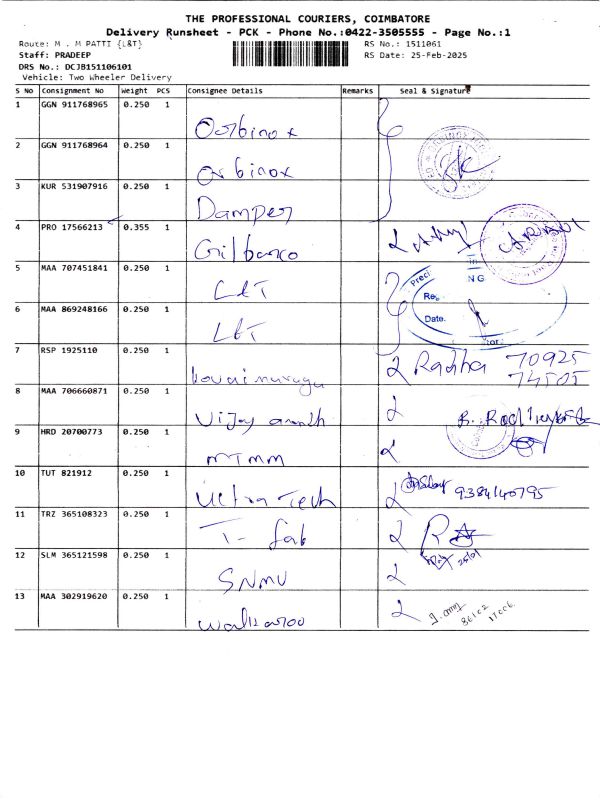 THE PROFESSIONAL COURIERS, COIMBATORE
Delivery Runsheet - PCK - Phone No.:0422-3505555 - Page No.:1
Route: M . M PATTI {L&T}
RS No.: 1511061
Staff: PRADEEP
RS Date: 25-Feb-2025
DRS No.: DCJB151106101
Vehicle: Two Wheeler Delivery
S No Consignment No Weight PCS Consignee Details Remarks Seal & Signature
1 GGN 911768965 0.250 1 Oorbinox
2 GGN 911768964 0.250 1 Oorbinox
3 KUR 531907916 0.250 1 Damper
4 PRO 17566213 0.355 1 Gilbarco
5 MAA 707451841 0.250 1 L&T
6 MAA 869248166 0.250 1 L&T
Date.
7 RSP 1925110 0.250 1 Radha 70925
74505
8 MAA 706660871 0.250 1 Vijay
9 HRD 20700773 0.250 1 MTMM
10 TUT 821912 0.250 1 Ultra Tech 9384140795
11 TRZ 365108323 0.250 1 T- fab
12 SLM 365121598 0.250 1 SNMV
13 MAA 302919620 0.250 1 Walkaroo